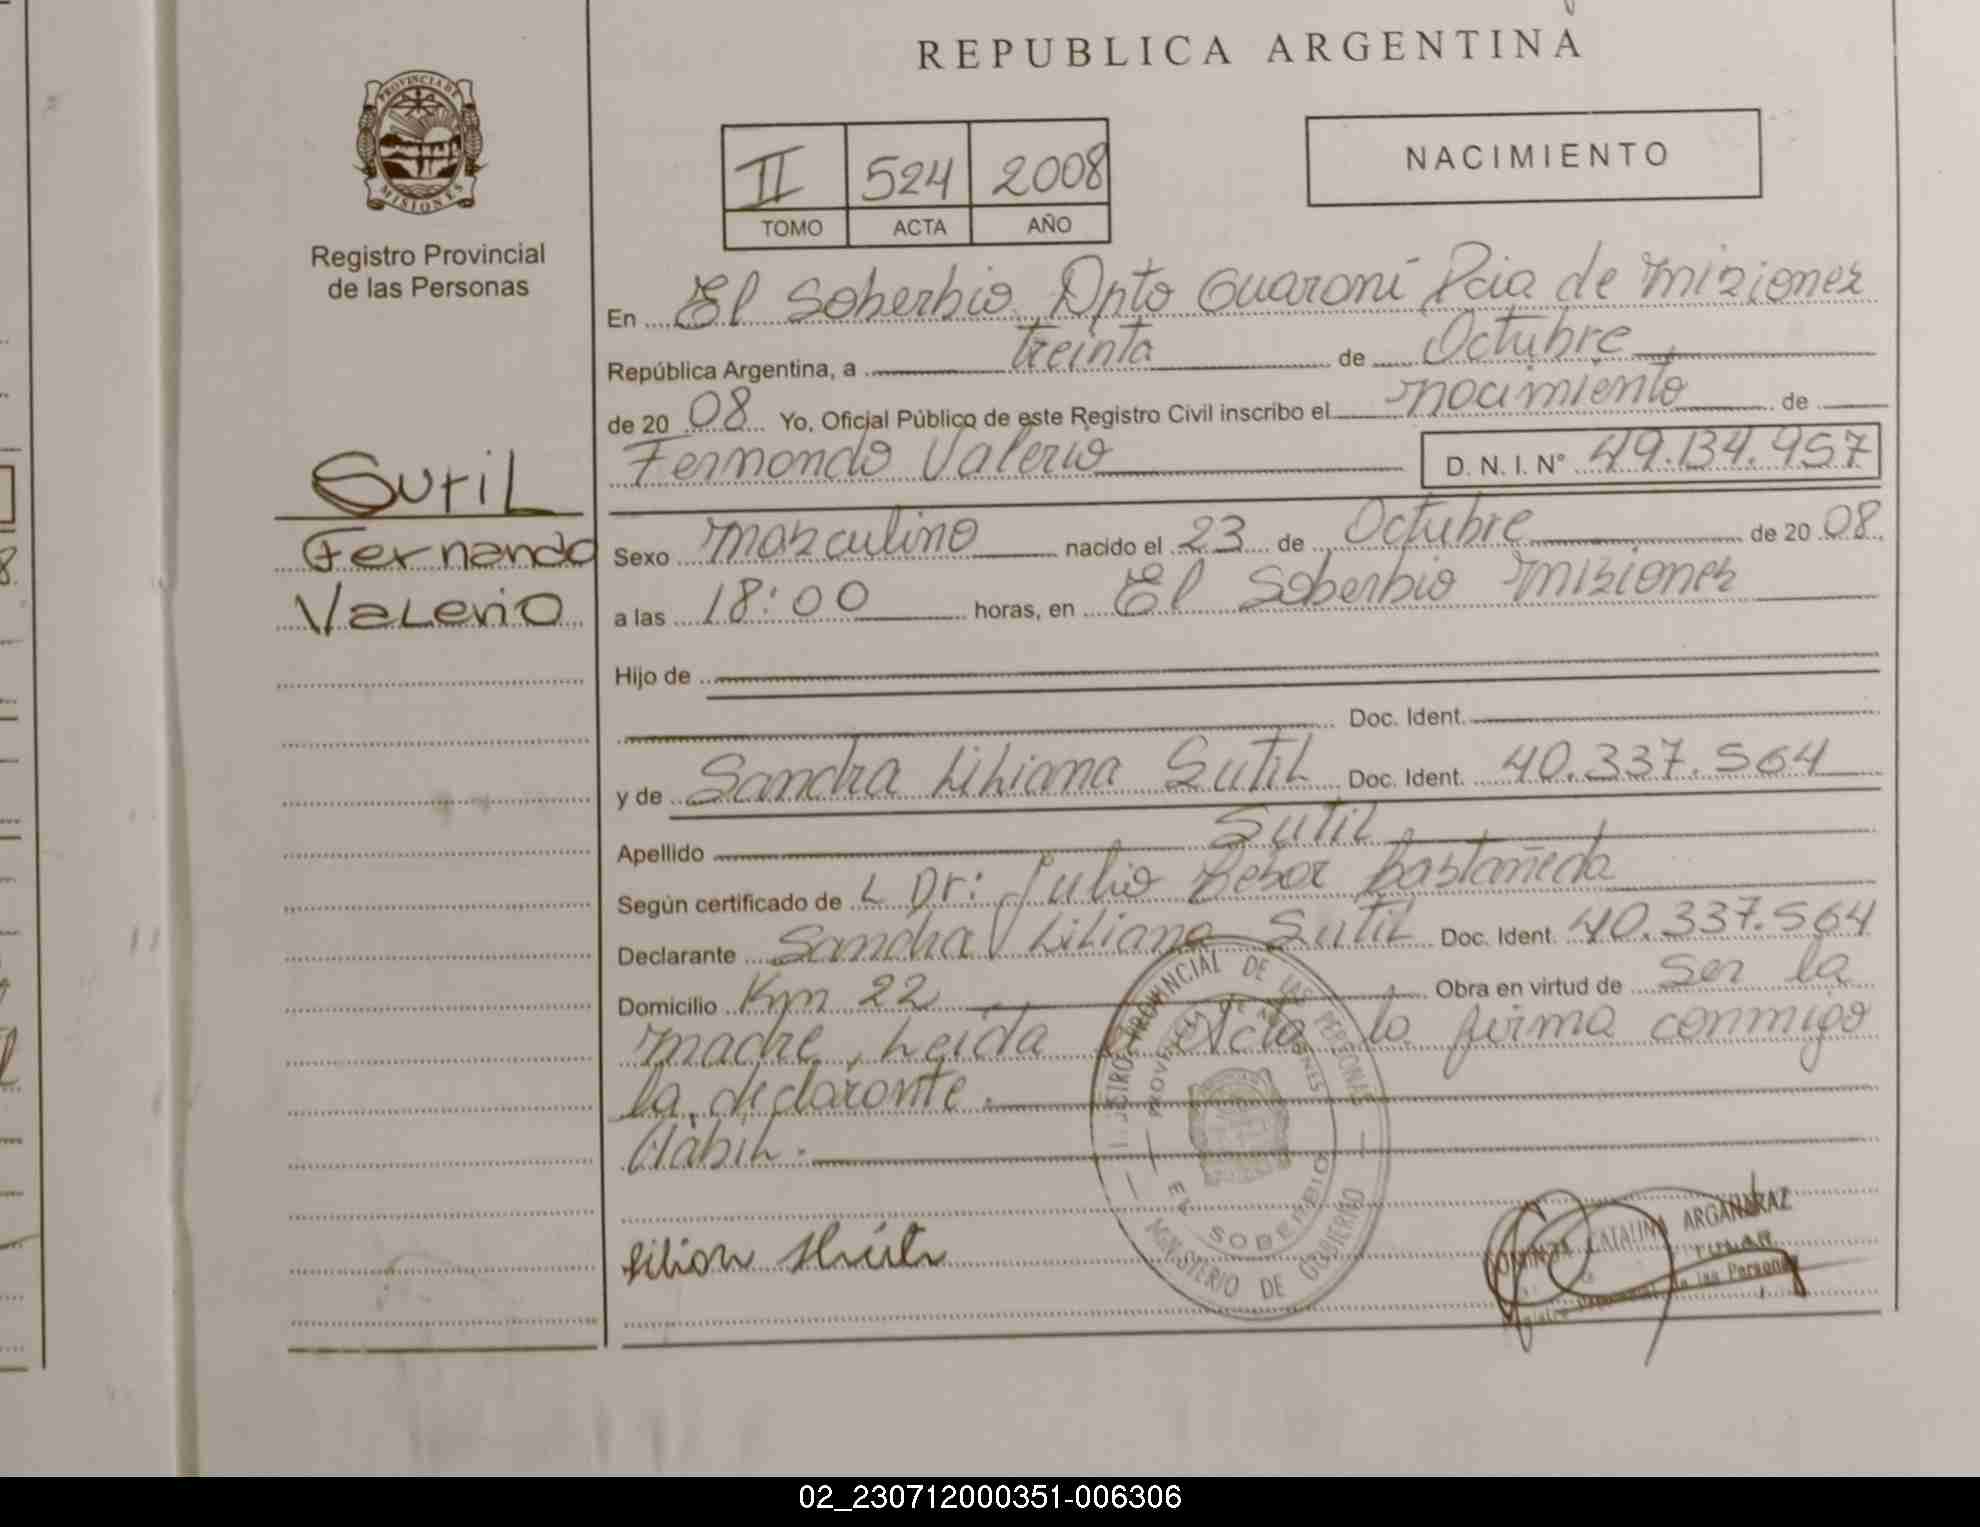 REPUBLICA ARGENTINA
PROVINCIA DE
MISIONES
Registro Provincial
de las Personas
II 524 2008
TOMO ACTA AÑO
NACIMIENTO
En El Soberbio Dpto Guaroni Pcia de misiones
República Argentina, a treinta de Octubre
de 20 08 Yo, Oficial Público de este Registro Civil inscribo el nacimiento de
Fernando Valerio D. N. I. N° 49.134.957
Sutil
Fernando
Valerio
Sexo masculino nacido el 23 de Octubre de 20 08
a las 18:00 horas, en El Soberbio misiones
Hijo de
Doc. Ident.
y de Sandra Liliana Sutil Doc. Ident. 40.337.564
Apellido Sutil
Según certificado de L Dr: Julio Castañeda
Declarante Sandra Liliana Sutil Doc. Ident. 40.337.564
Domicilio Km 22 Obra en virtud de ser la
madre, Leida Acta la firma conmigo
la declarante.
REGISTRO PROVINCIAL DE LAS PERSONAS
PROVINCIA DE MISIONES
EL SOBERBIO
MINISTERIO DE GOBIERNO
CATALINA ARGAÑARAZ
TITULAR
Registro Provincial de las Personas
02_230712000351-006306